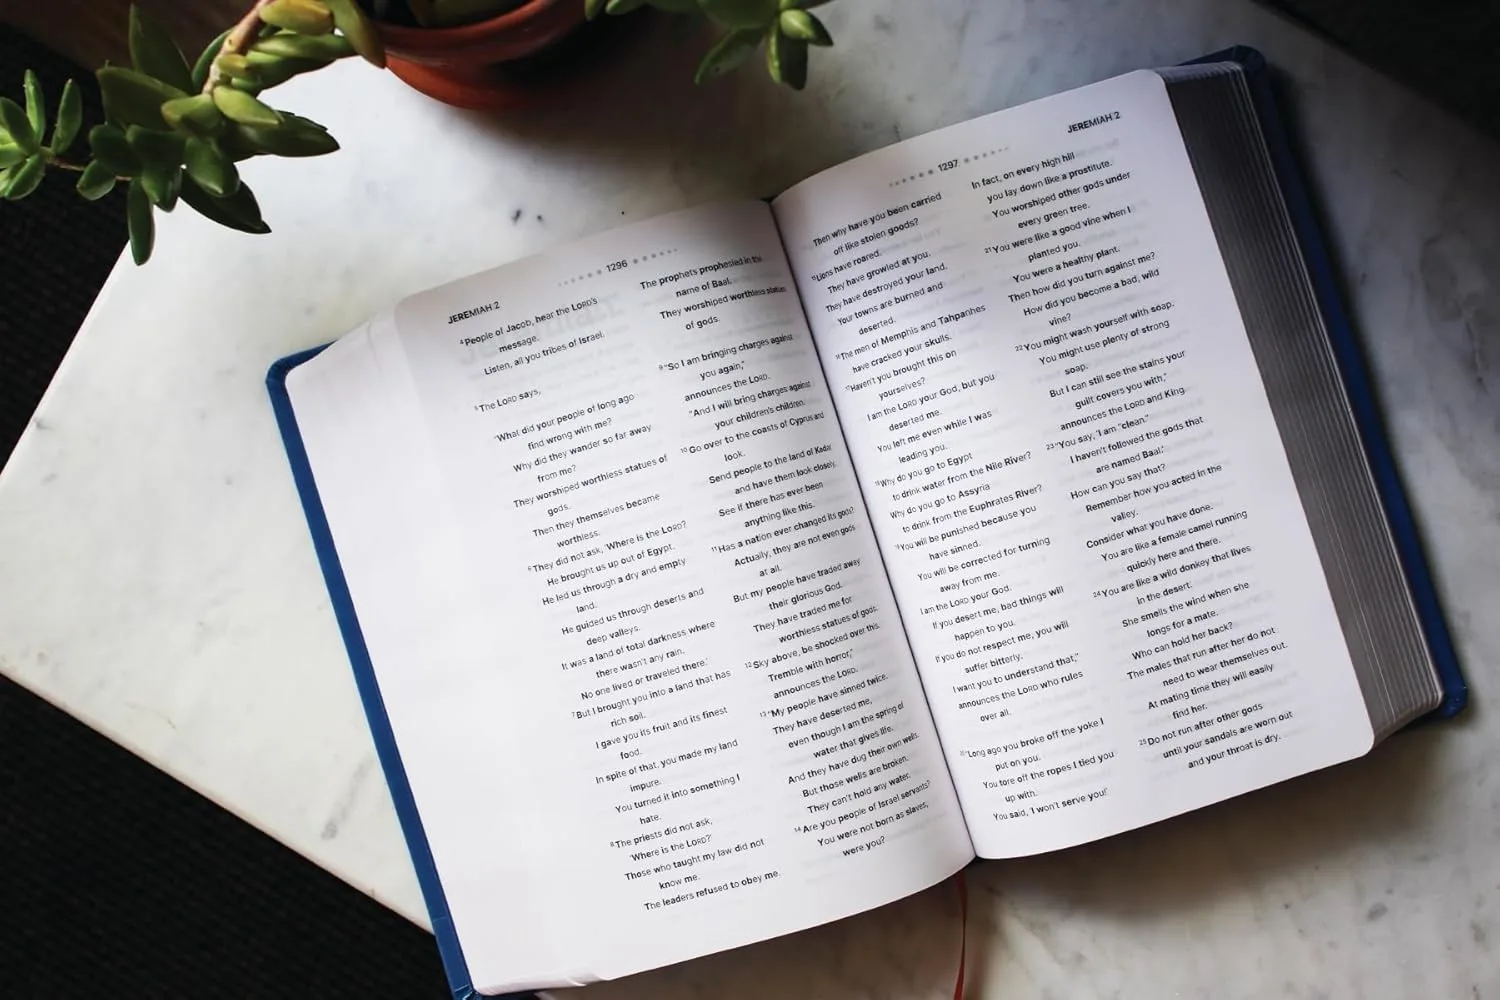 1296
JEREMIAH 2
⁴People of Jacob, hear the LORD's
message.
Listen, all you tribes of Israel.
⁵The LORD says,
"What did your people of long ago
find wrong with me?
Why did they wander so far away
from me?
They worshiped worthless statues of
gods.
Then they themselves became
worthless.
⁶They did not ask, 'Where is the LORD?
He brought us up out of Egypt.
He led us through a dry and empty
land.
He guided us through deserts and
deep valleys.
It was a land of total darkness where
there wasn't any rain.
No one lived or traveled there.'
⁷But I brought you into a land that has
rich soil.
I gave you its fruit and its finest
food.
In spite of that, you made my land
impure.
You turned it into something I
hate.
⁸The priests did not ask,
'Where is the LORD?'
Those who taught my law did not
know me.
The leaders refused to obey me.
The prophets prophesied in the
name of Baal.
They worshiped worthless statues
of gods.
⁹"So I am bringing charges against
you again,"
announces the LORD.
"And I will bring charges against
your children's children.
¹⁰Go over to the coasts of Cyprus and
look.
Send people to the land of Kedar
and have them look closely.
See if there has ever been
anything like this.
¹¹Has a nation ever changed its gods?
Actually, they are not even gods
at all.
But my people have traded away
their glorious God.
They have traded me for
worthless statues of gods.
¹²Sky above, be shocked over this.
Tremble with horror,"
announces the LORD.
¹³"My people have sinned twice.
They have deserted me,
even though I am the spring of
water that gives life.
And they have dug their own wells.
But those wells are broken.
They can't hold any water.
¹⁴Are you people of Israel servants?
You were not born as slaves,
were you?
1297
JEREMIAH 2
Then why have you been carried
off like stolen goods?
¹⁵Lions have roared.
They have growled at you.
They have destroyed your land.
Your towns are burned and
deserted.
¹⁶The men of Memphis and Tahpanhes
have cracked your skulls.
¹⁷Haven't you brought this on
yourselves?
I am the LORD your God, but you
deserted me.
You left me even while I was
leading you.
¹⁸Why do you go to Egypt
to drink water from the Nile River?
Why do you go to Assyria
to drink from the Euphrates River?
¹⁹You will be punished because you
have sinned.
You will be corrected for turning
away from me.
I am the LORD your God.
If you desert me, bad things will
happen to you.
If you do not respect me, you will
suffer bitterly.
I want you to understand that,"
announces the LORD who rules
over all.
²⁰"Long ago you broke off the yoke I
put on you.
You tore off the ropes I tied you
up with.
You said, 'I won't serve you!'
In fact, on every high hill
you lay down like a prostitute.
You worshiped other gods under
every green tree.
²¹You were like a good vine when I
planted you.
You were a healthy plant.
Then how did you turn against me?
How did you become a bad, wild
vine?
²²You might wash yourself with soap.
You might use plenty of strong
soap.
But I can still see the stains your
guilt covers you with,"
announces the LORD and King.
²³"You say, 'I am "clean."
I haven't followed the gods that
are named Baal.'
How can you say that?
Remember how you acted in the
valley.
Consider what you have done.
You are like a female camel running
quickly here and there.
²⁴You are like a wild donkey that lives
in the desert.
She smells the wind when she
longs for a mate.
Who can hold her back?
The males that run after her do not
need to wear themselves out.
At mating time they will easily
find her.
²⁵Do not run after other gods
until your sandals are worn out
and your throat is dry.